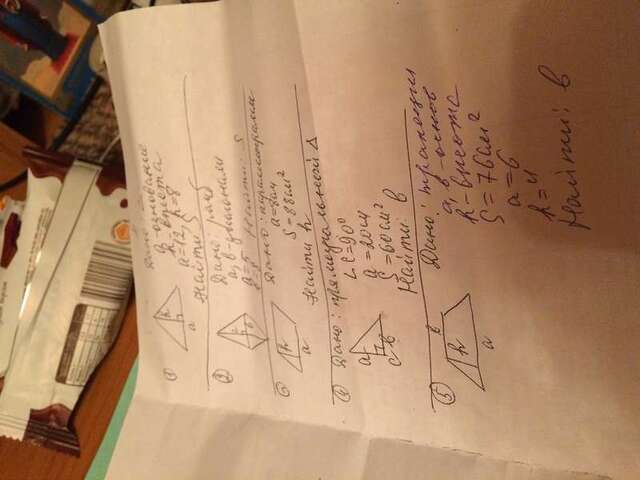 ① Дано:
а-основание
h-высота
а=12, h=8
h
а
Найти S
② Дано: ромб
а, в-диагонали
а=5
в=8 Найти: S
③ Дано: параллелограмм
а=8см
S=88см²
h
а
Найти h
④ Дано: прямоугольный △
∠C=90°
а=20см
S=60см²
а
C в
Найти: в
⑤ Дано: трапеция
а, в-основ
h-высота
S=76см²
а=6
h=4
в
h
а
Найти: в